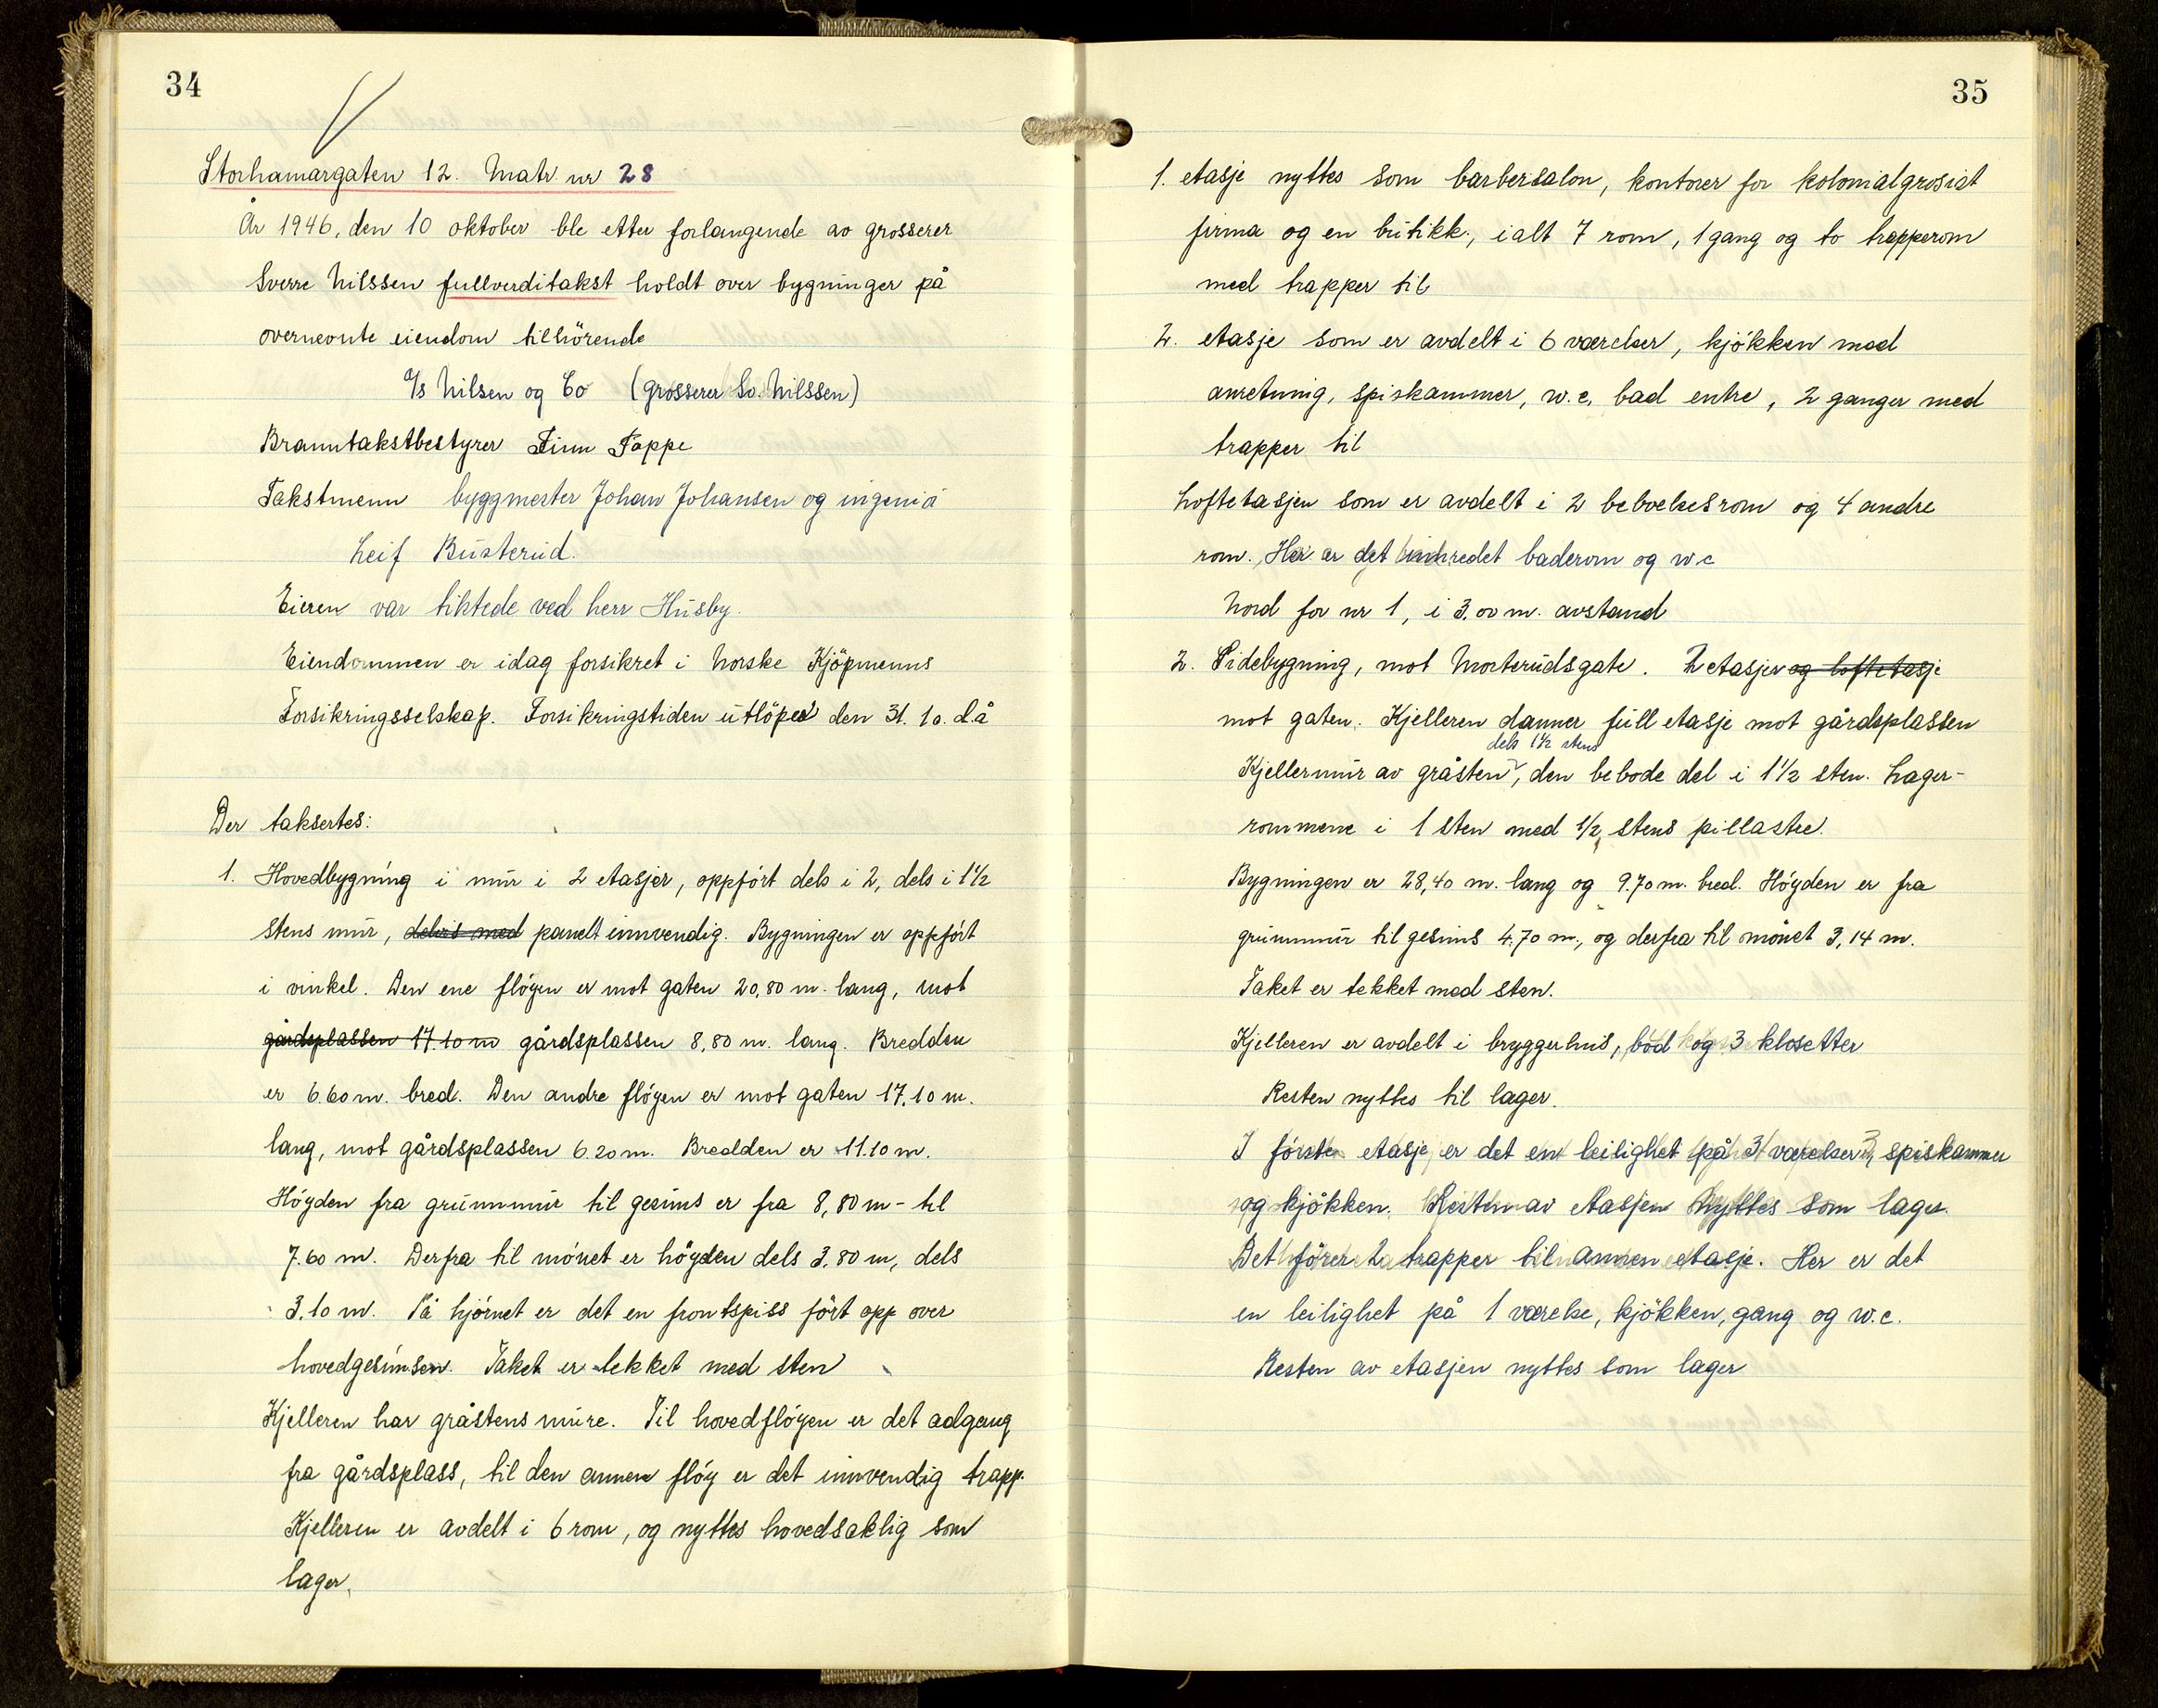 34
Storhamargaten 12. Matr nr 28
År 1946, den 10 oktober ble etter forlangende av grosserer
Sverre Nilssen fullverditakst holdt over bygninger på
overnevnte eiendom tilhörende
A/s Nilsen og Co (grosserer Sv. Nilssen)
Branntakstbestyrer Finn Foppe
Takstmenn byggmester Johan Johansen og ingeniö
Leif Busterud.
Eieren var tiktede ved herr Husby.
Eiendommen er idag forsikret i Norske Kjöpmenns
Forsikringsselskap. Forsikringstiden utlöper den 31. 10. d.å
Der taksertes:
1. Hovedbygning i mur i 2 etasjer, oppfört dels i 2, dels i 1½
stens mur, delvis med panelt innvendig. Bygningen er oppfört
i vinkel. Den ene flöyen er mot gaten 20,80 m. lang, mot
gårdsplassen 17.10 m gårdsplassen 8,80 m. lang. Bredden
er 6.60 m. bred. Den andre flöyen er mot gaten 17.10 m.
lang, mot gårdsplassen 6.20 m. Bredden er 11.10 m.
Höyden fra grunnmur til gesims er fra 8,80 m - til
7.60 m. Derfra til mönet er höyden dels 3.80 m, dels
3.10 m. På hjörnet er det en frontspiss fört opp over
hovedgesimsen. Taket er tekket med sten
Kjelleren har gråstens mure. Til hovedflöyen er det adgang
fra gårdsplass, til den annen flöy er det innvendig trapp.
Kjelleren er avdelt i 6 rom, og nyttes hovedsaklig som
lager.
35
1. etasje nyttes som barbersalon, kontorer for kolonialgrosist
firma og en butikk, ialt 7 rom, 1 gang og to trapperom
med trapper til
2. etasje som er avdelt i 6 værelser, kjökken med
anretning, spiskammer, w.c, bad entre, 2 ganger med
trapper til
Loftetasjen som er avdelt i 2 beboelsesrom og 4 andre
rom. Her er det innredet baderom og w.c
Nord for nr 1, i 3.00 m. avstand
2. Sidebygning, mot Morterudsgate. 2 etasjer og loftetasje
mot gaten. Kjelleren danner full etasje mot gårdsplassen
dels 1½ stens
Kjellermur av gråsten, den bebode del i 1½ sten. Lager-
rommene i 1 sten med ½ stens pillastre.
Bygningen er 28,40 m. lang og 9.70 m. bred. Höyden er fra
grunnmur til gesims 4.70 m., og derfra til mönet 3,14 m.
Taket er tekket med sten.
Kjelleren er avdelt i bryggerhus, bod og 3 klosetter
Resten nyttes til lager.
I förste etasje er det en leilighet på 3 værelser, spiskammer
og kjökken. Resten av etasjen nyttes som lager.
Det förer 2 trapper til annen etasje. Her er det
en leilighet på 1 værelse, kjökken, gang og w.c.
Resten av etasjen nyttes som lager